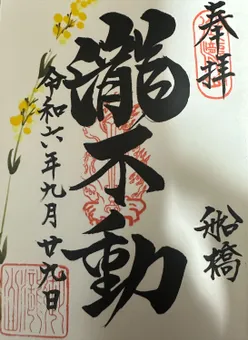 奉拝
船橋
瀧不動
令和六年九月廿九日